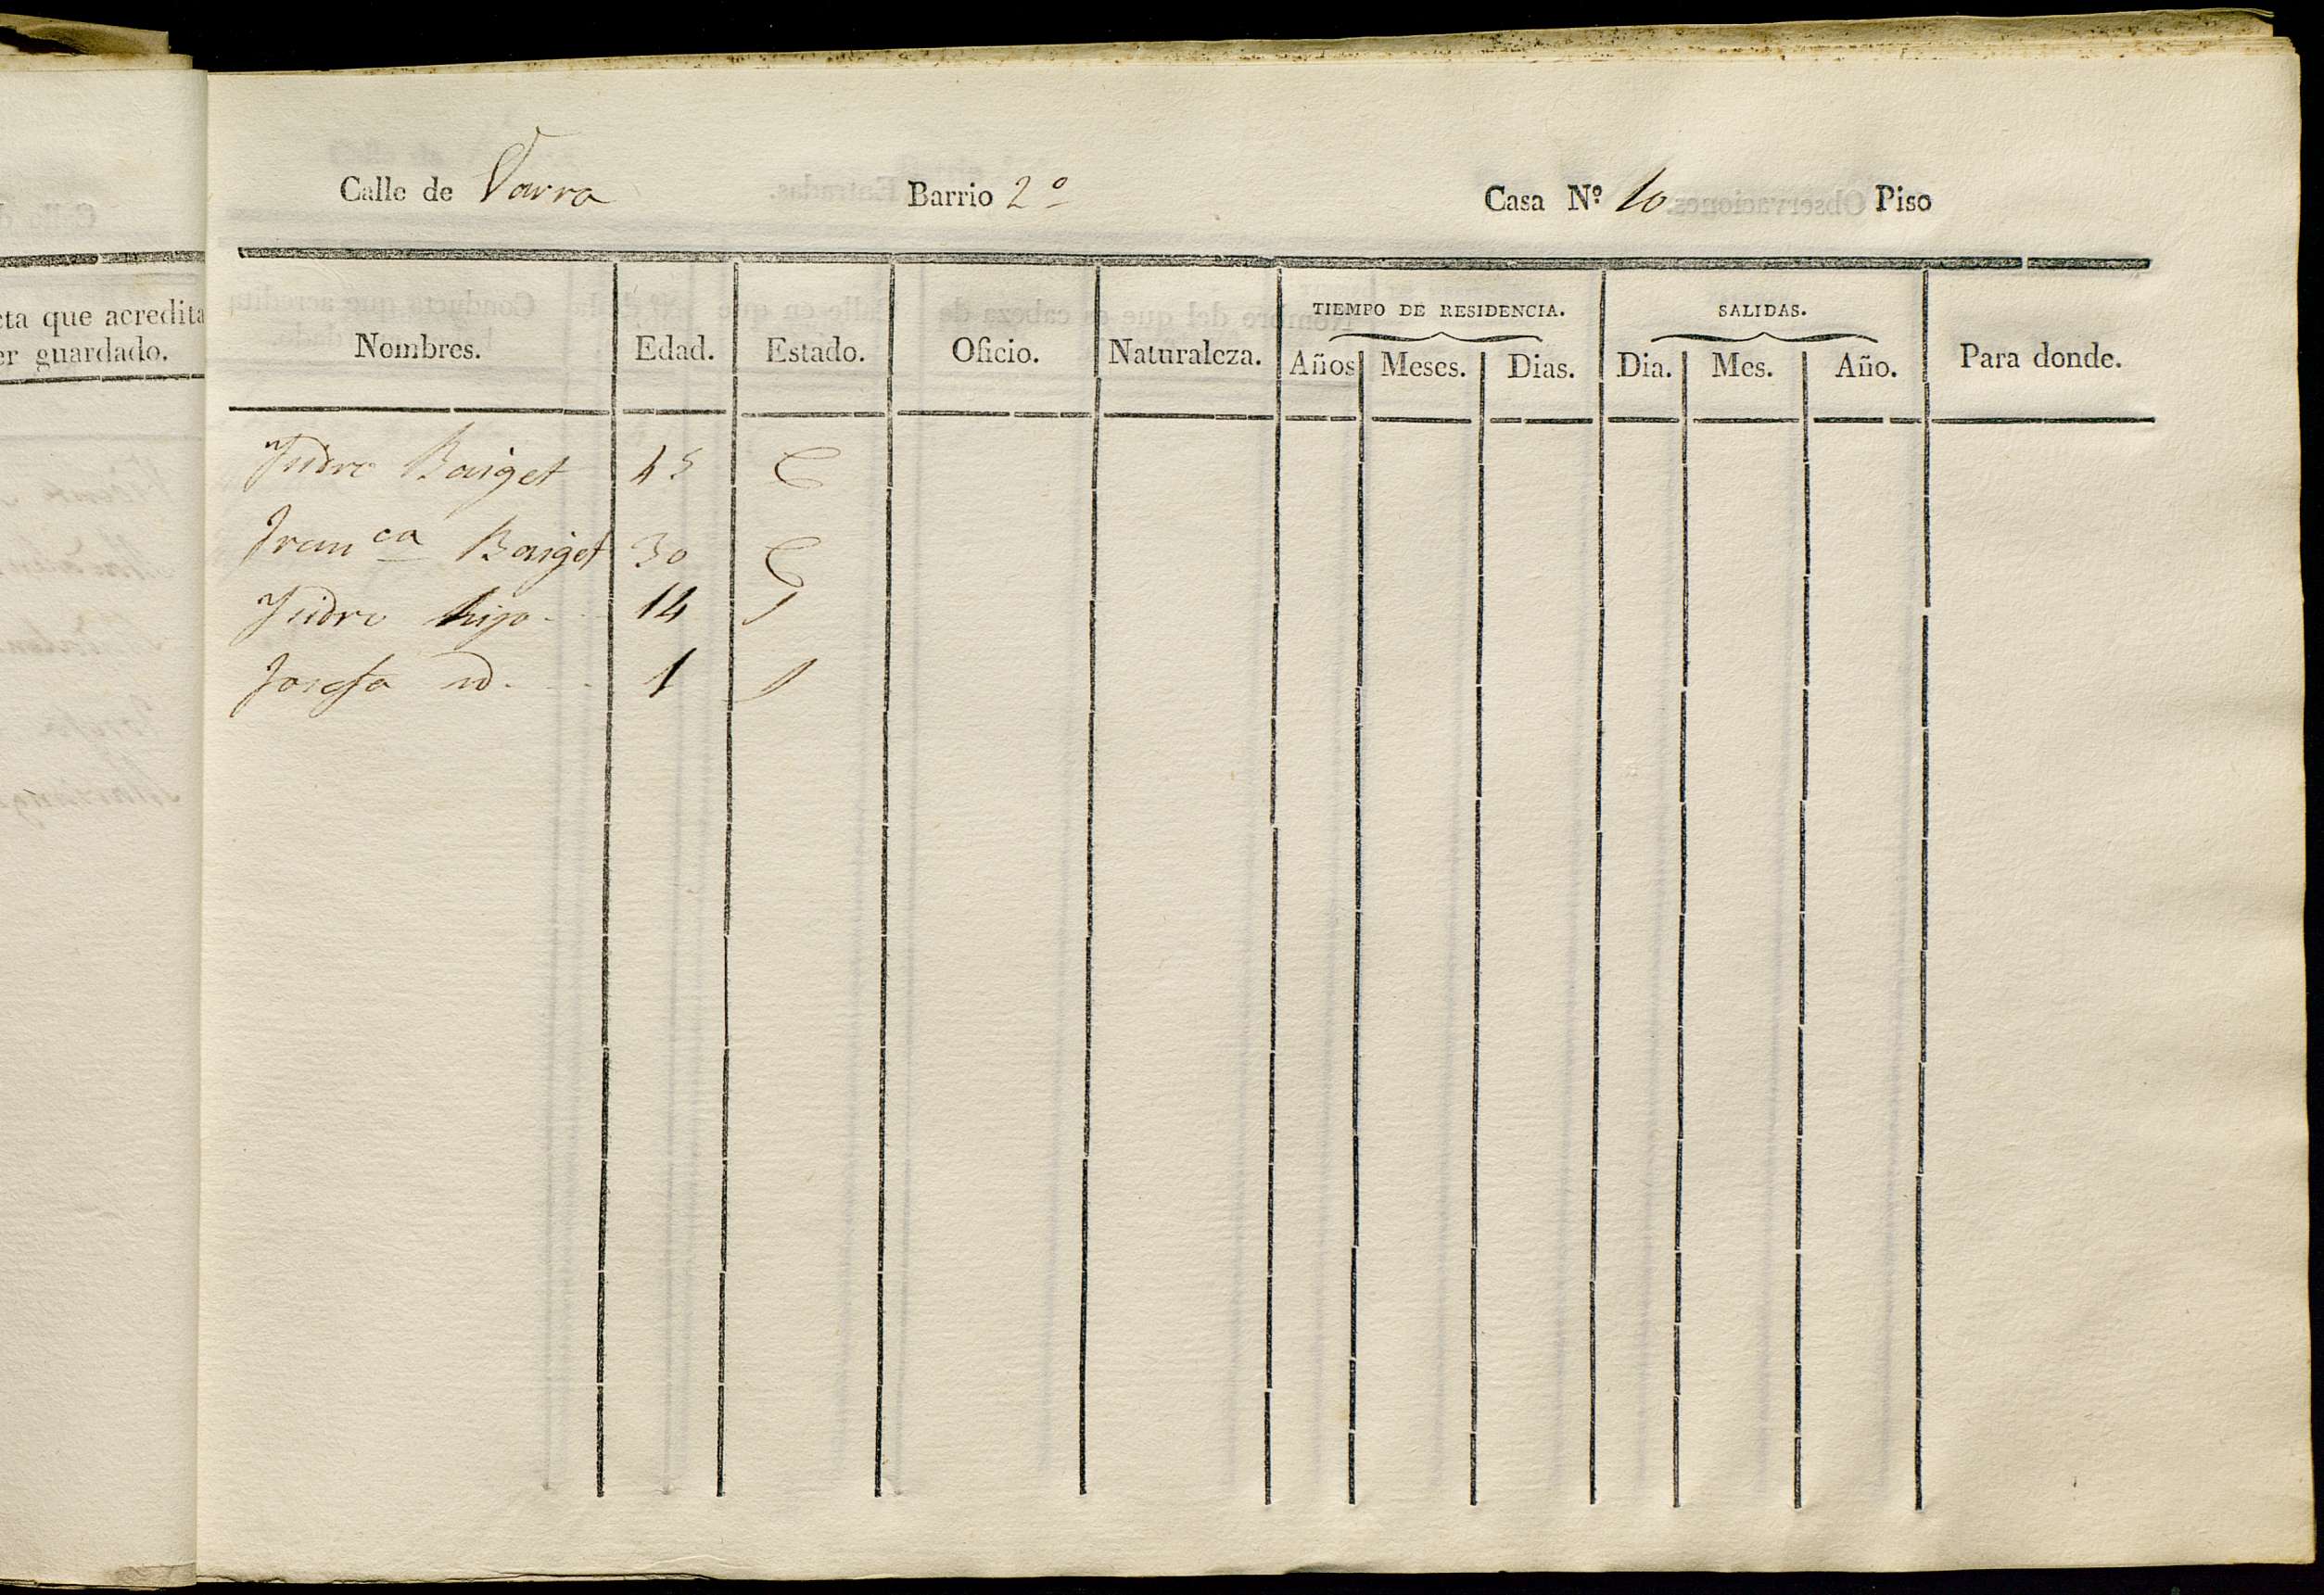 Calle de Parra Barrio 2º Casa Nº 10 Piso
cta que acredita
er guardado.
TIEMPO DE RESIDENCIA. SALIDAS.
Nombres. Edad. Estado. Oficio. Naturaleza. Años Meses. Dias. Dia. Mes. Año. Para donde.
Isidro Baiget 45 C
Franca Baiget 30 C
Isidro hijo 14 S
Josefa id. 1 S